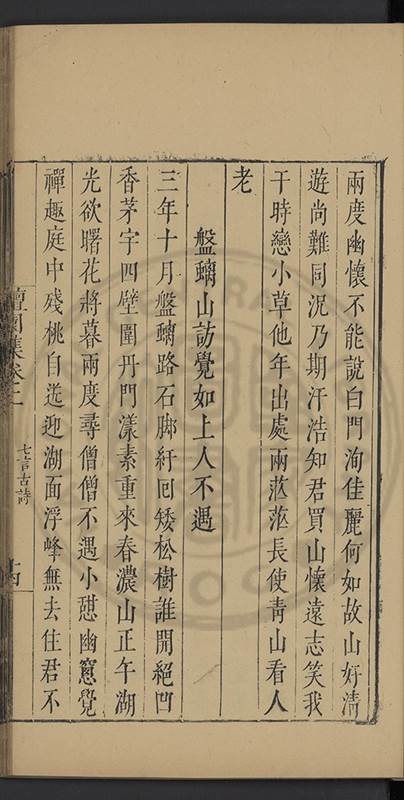 兩度幽懷不能說白門洵佳麗何如故山好清
遊尚難同況乃期汗浩知君買山懷遠志笑我
干時戀小草他年出處兩茫茫長使青山看人
老
盤螭山訪覺如上人不遇
三年十月盤螭路石脚紆回矮松樹誰開絕凹
香茅宇四壁圍丹門漾素重來春濃山正午湖
光欲曙花將暮兩度尋僧僧不遇小憇幽窻覺
禪趣庭中殘桃自迸迎湖面浮峰無去住君不
集卷二
七言古詩